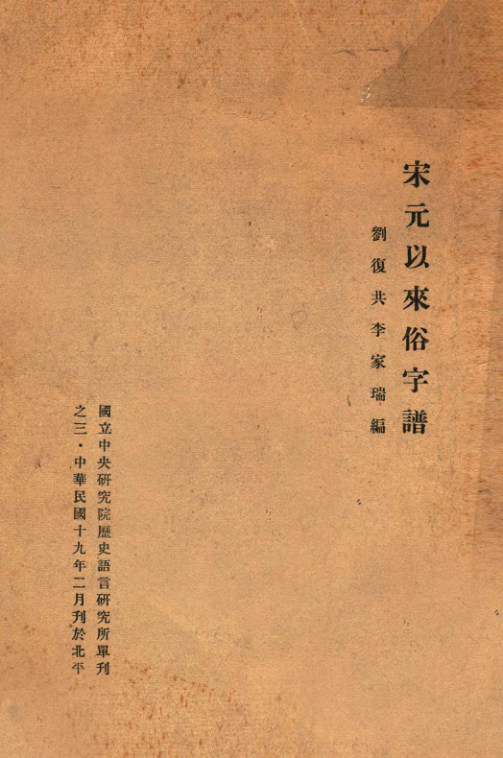 宋元以來俗字譜
劉復共李家瑞編
國立中央研究院歷史語言研究所單刊
之三・中華民國十九年二月刊於北平